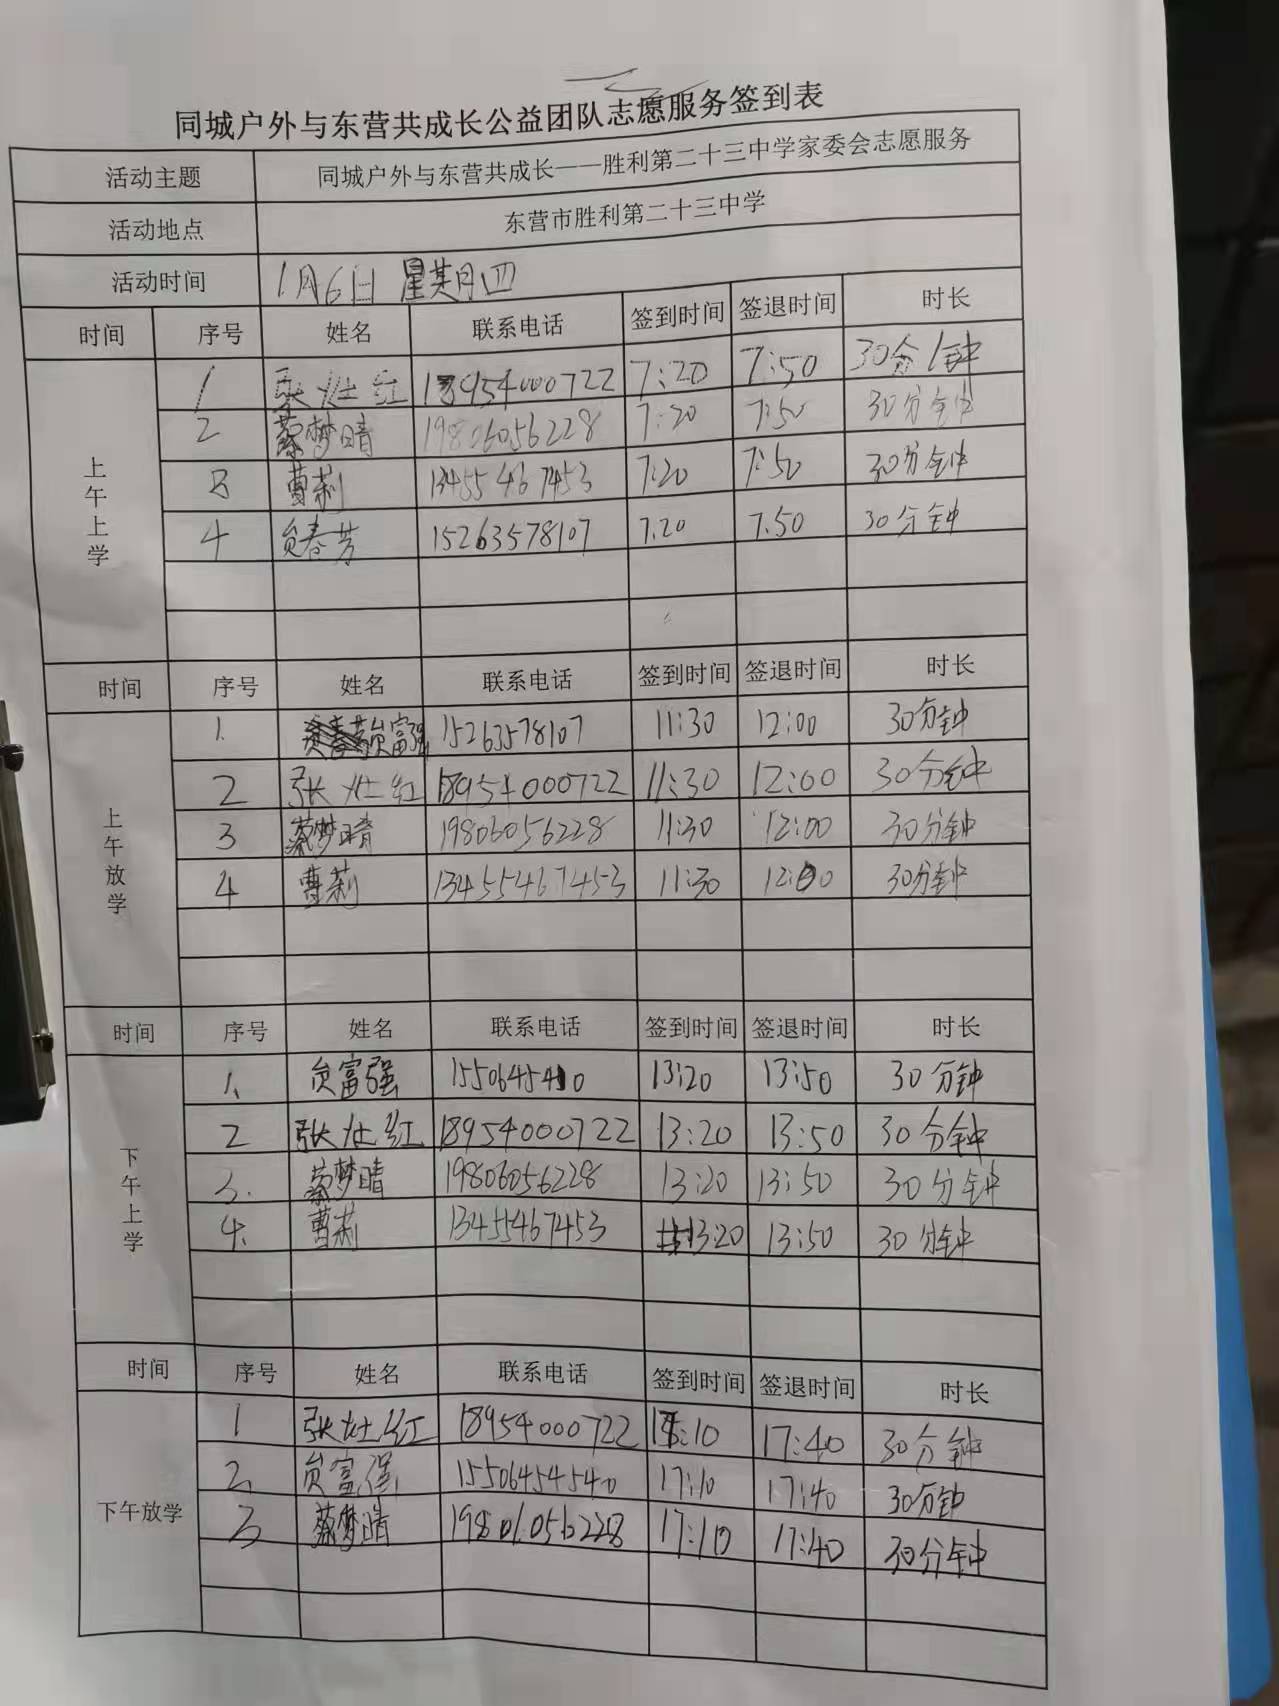 同城户外与东营共成长公益团队志愿服务签到表
活动主题 同城户外与东营共成长——胜利第二十三中学家委会志愿服务
活动地点 东营市胜利第二十三中学
活动时间 1月6日 星期四
时间 序号 姓名 联系电话 签到时间 签退时间 时长
上午上学
1 张灶红 18954000722 7:20 7:50 30分钟
2 蔡梦晴 19806056228 7:20 7:50 30分钟
3 曹莉 13455467453 7:20 7:50 30分钟
4 贠春芳 15263578107 7.20 7.50 30分钟
时间 序号 姓名 联系电话 签到时间 签退时间 时长
上午放学
1. 贠富强 15263578107 11:30 12:00 30分钟
2 张灶红 18954000722 11:30 12:00 30分钟
3 蔡梦晴 19806056228 11:30 12:00 30分钟
4 曹莉 13455467453 11:30 12:00 30分钟
时间 序号 姓名 联系电话 签到时间 签退时间 时长
下午上学
1. 贠富强 13:20 13:50 30分钟
2 张灶红 18954000722 13:20 13:50 30分钟
3. 蔡梦晴 19806056228 13:20 13:50 30分钟
4. 曹莉 13455467453 13:20 13:50 30分钟
时间 序号 姓名 联系电话 签到时间 签退时间 时长
下午放学
1 张灶红 18954000722 17:10 17:40 30分钟
2 贠富强 15506454540 17:10 17:40 30分钟
3 蔡梦晴 19806056228 17:10 17:40 30分钟